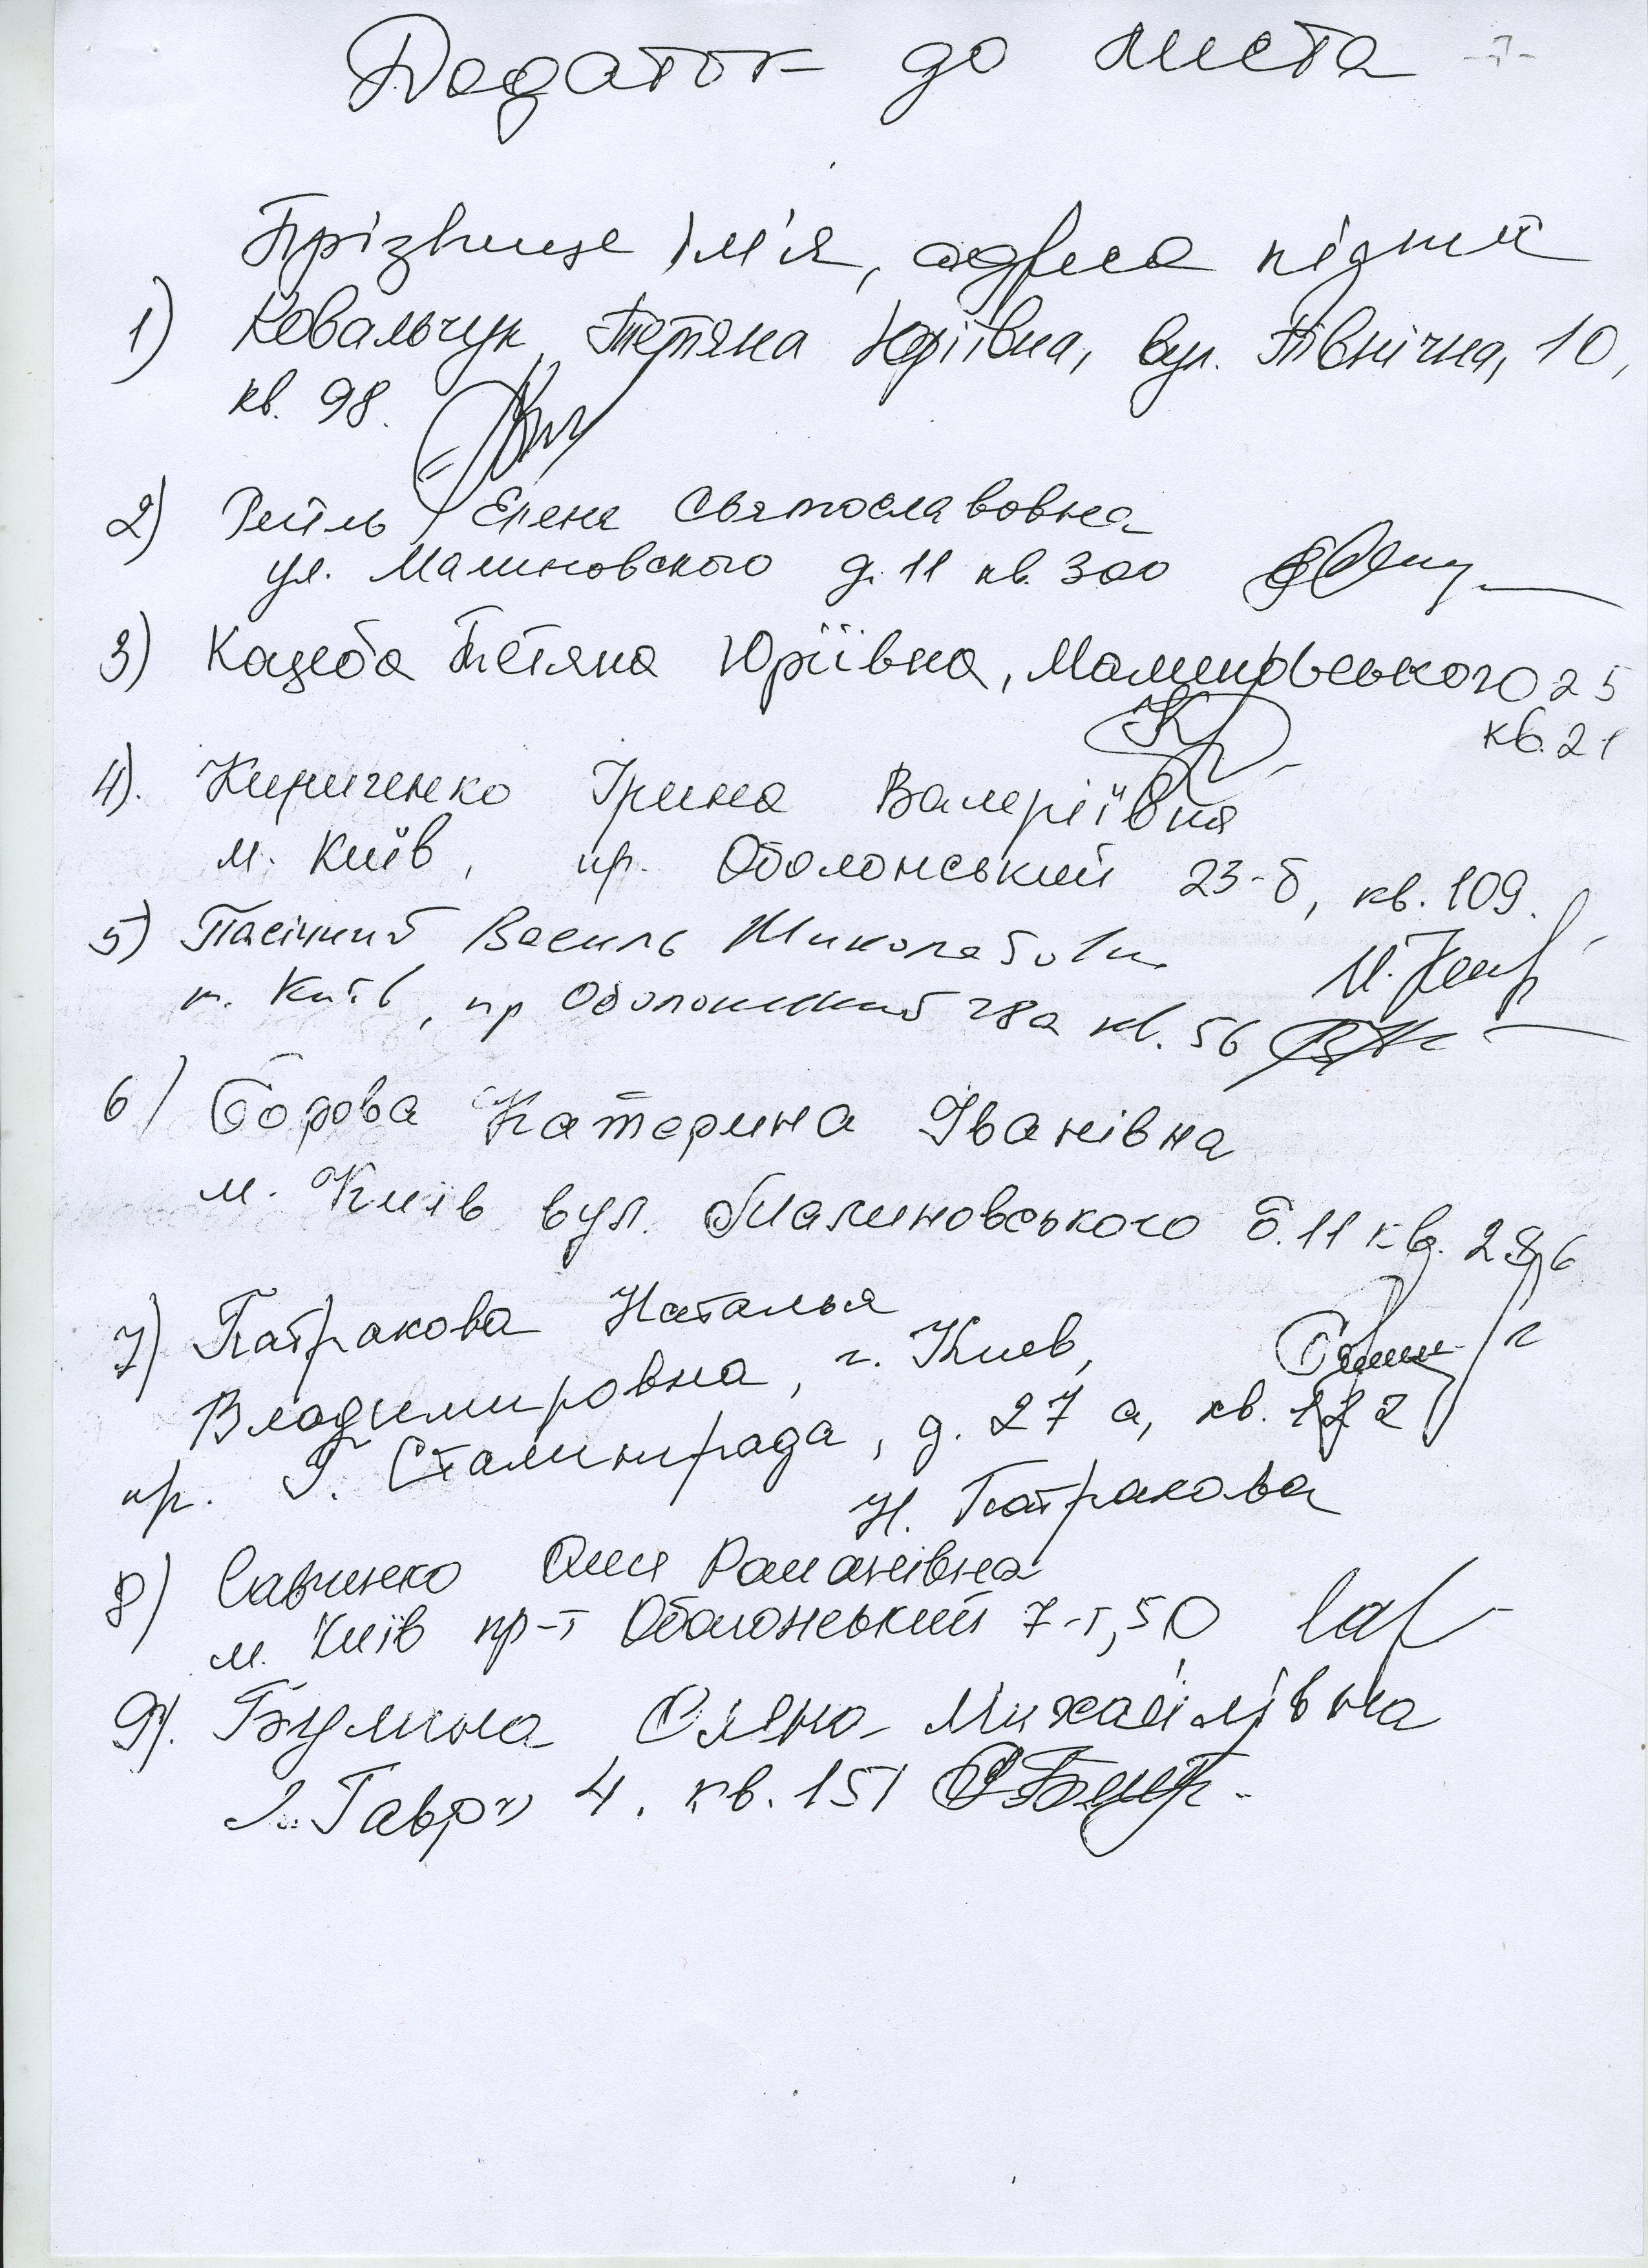 Додаток до листа
Прізвище Ім'я, адреса підпис
1) Ковальчук Тетяна Юріївна, вул. Північна, 10,
кв. 98.
2) Рейль Елена Святославовна
ул. Малиновского д. 11 кв. 300
3) Кацеба Тетяна Юріївна, Малиновського 25
кв. 21
4). Кириченко Ірина Валеріївна
м. Київ, пр. Оболонський 23-б, кв. 109.
5) Пасічний Василь Миколайович
м. Київ, пр Оболонський 28а кв. 56
6) Борова Катерина Іванівна
м. Київ вул. Малиновського б. 11 кв. 286
7) Патракова Наталья
Владимировна, г. Киев,
пр. Г. Сталинграда, д. 27 а, кв. 122
Н. Патракова
8) Савченко Олеся Романівна
м. Київ пр-т Оболонський 7-г, 50
9). Булина Олена Михайлівна
"Гавр" 4. кв. 151